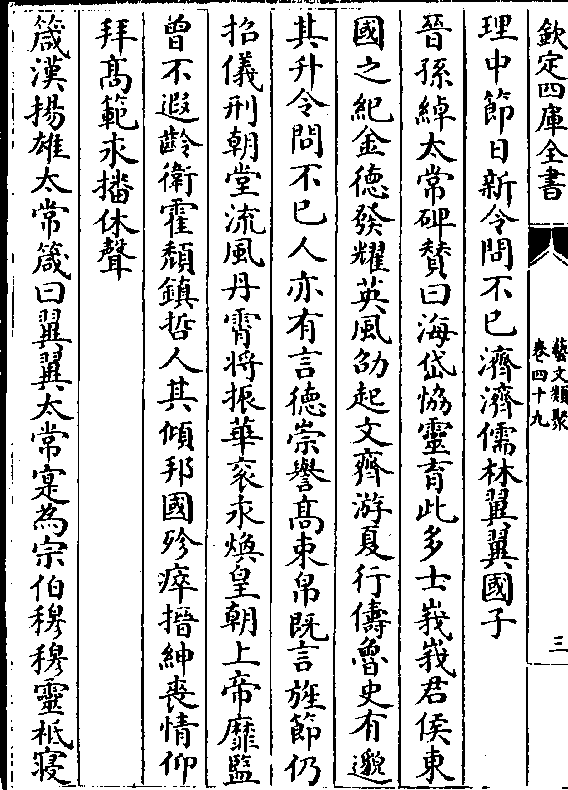 欽定四庫全書
藝文類聚
卷四十九
三
理中節日新令問不已濟濟儒林翼翼國子
晉孫綽太常碑賛曰海岱恊靈育此多士峩峩君侯東
國之紀金德發耀英風劭起文齊游夏行儔魯史有邈
其升令問不已人亦有言德崇譽髙束帛既言旌節仍
招儀刑朝堂流風丹霄將振華衮永煥皇朝上帝靡監
曾不遐齡衛霍頽鎮哲人其傾邦國殄瘁搢紳喪情仰
拜髙範永播休聲
箴漢揚雄太常箴曰翼翼太常寔為宗伯穆穆靈祗寢